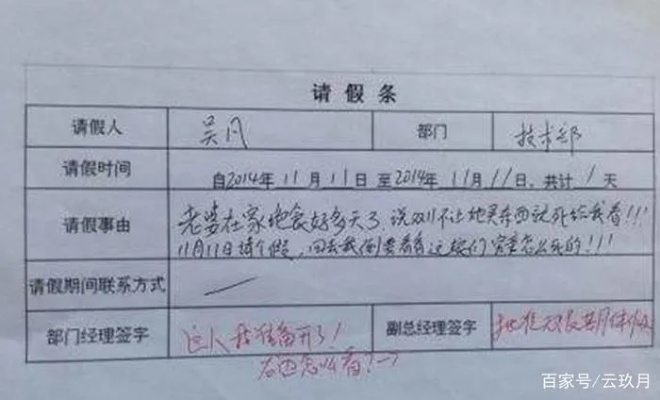 请假条
请假人 吴凡 部门 技术部
请假时间 自2014年11月11日至2014年11月11日，共计1天
请假事由 老婆在家绝食好多天了，说双11不让她买东西就死给我看！！！
11月11日请个假，回去我倒要看看这娘们究竟怎么死的！！！
请假期间联系方式
部门经理签字 这人我准备开了！ 副总经理签字 批准
右边怎么看？→
百家号/云玖月